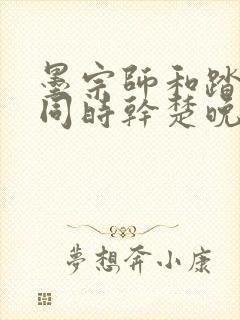 墨宗師和踏
同時幹楚晚
夢想奔小康